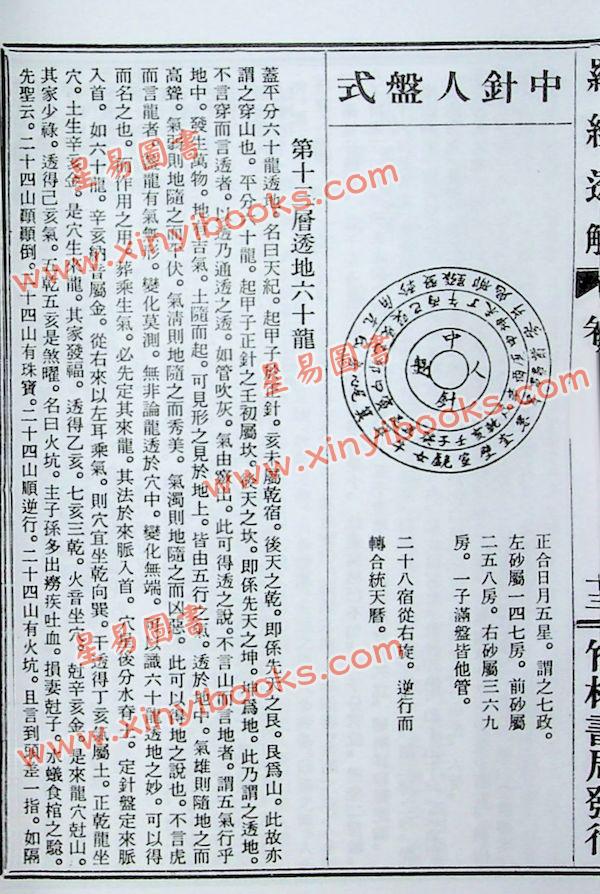 羅經透解
卷
十三
竹林書局發行
中針人盤式
中
人
針
盤
正合日月五星。謂之七政。
左砂屬一四七房。前砂屬
二五八房。右砂屬三六九
房。一子滿盤皆他管。
二十八宿從右旋。逆行而
轉合統天曆。
第十二層透地六十龍
蓋平分六十龍透地。名曰天紀。起甲子於正針。亥末屬乾宿。後天之乾。即係先天之艮。艮為山。此故亦
謂之穿山也。平分六十龍。起甲子正針之壬初屬坎。後天之坎。即係先天之坤。坤為地。此乃謂之透地。
不言穿而言透者。以透乃通透之透。如管吹灰。氣由竅出。此可得透之說。不言山而言地者。謂五氣行乎
地中。發生萬物。地有吉氣。土隨而起。可見形之見於地上。皆由五行之氣。透於地中。氣雄則隨地之而
高聳。氣弱則地隨之而平伏。氣清則地隨之而秀美。氣濁則地隨之而凶惡。此可以得地之說也。不言虎
而言龍者。龍有氣無形。變化莫測。無非論龍透於穴中。變化無端。可以識六十龍透地之妙。可以得
而名之也。而作用之用。葬乘生氣。必先定其來龍。其法於來脈入首。穴後分水脊上。定針盤定來脈
入首。如六十龍。辛亥納音屬金。從右來以左耳乘氣。則穴宜坐乾向巽。于透得丁亥氣屬土。正乾龍坐
穴。土生辛亥金。是穴生來龍。其家發福。透得乙亥。七亥三乾。火音坐穴。尅辛亥金。是來龍穴尅山。
其家少祿。透得己亥氣。五乾五亥是煞曜。名曰火坑。主子孫多出癆疾吐血。損妻尅子。水蟻食棺之騐。
先聖云。二十四山顛顛倒。二十四山有珠寶。二十四山順逆行。二十四山有火坑。且言到頭差一指。如隔
星易圖書
www.xinyibooks.com
星易圖書
www.xinyibooks.com
星易圖書
www.xinyibooks.com